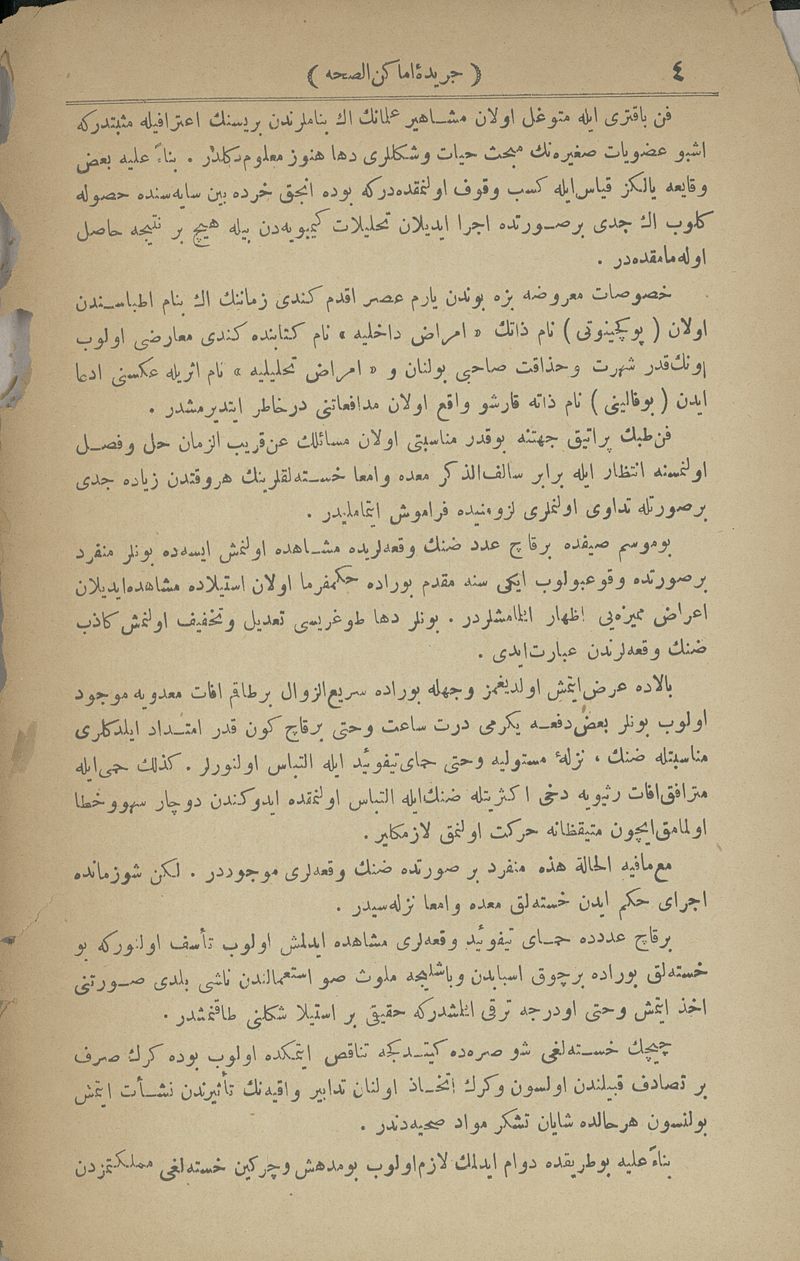 ٤
( جریدهٔ اماكن الصحه )
فن باقتری ایله متوغل اولان مشاهیر علمانك اك بناملرندن بریسنك اعترافیله مثبتدركه
اشبو عضویات صغیره‌نك مبحث حیات وشكللری دها هنوز معلوم دكلدر . بناءً علیه بعض
وقایعه یالكز قیاس ایله كسب وقوف اولنمقده‌دركه بوده انجق خرده بین سایه‌سنده حصوله
كلوب اك جدی بر صورتده اجرا ایدیلان تحلیلات كیمیویه‌دن بیله هیچ بر نتیجه حاصل
اوله‌مامقده‌در .
خصوصات معروضه بزه بوندن یارم عصر اقدم كندی زماننك اك بنام اطباسندن
اولان ( پوكچینوتی ) نام ذاتك « امراض داخلیه » نام كتابنده كندی معارضی اولوب
اونك قدر شهرت وحذاقت صاحبی بولنان و « امراض تحلیلیه » نام اثریله عكسنی ادعا
ایدن ( بوفالینی ) نام ذاته قارشو واقع اولان مدافعاتنی در خاطر ایتدیرمشدر .
فن طبك پراتیق جهتنه بوقدر مناسبتی اولان مسائلك عن قریب الزمان حل وفصل
اولنمسنه انتظار ایله برابر سالف الذكر معده وامعا خسته‌لقلرینك هر وقتدن زیاده جدی
بر صورتله تداوی اولنملری لزومنیده فراموش ایتماملیدر .
بو موسم صیفده بر قاچ عدد ضنك وقعه‌لریده مشاهده اولنمش ایسه‌ده بونلر منفرد
بر صورتده وقوعبولوب ایكی سنه مقدم بوراده حكمفرما اولان استیلاده مشاهده ایدیلان
اعراض ممیزه‌یی اظهار ایلمامشلردر . بونلر دها طوغریسی تعدیل وتخفیف اولنمش كاذب
ضنك وقعه‌لرندن عبارت ایدی .
بالاده عرض ایتمش اولدیغمز وجهله بوراده سریع الزوال بر طاقم افات معدویه موجود
اولوب بونلر بعض دفعه یكرمی درت ساعت وحتی بر قاچ كون قدر امتداد ایلدكلری
مناسبتله ضنك ، نزلهٔ مستولیه وحتی حمای تیفوئید ایله التباس اولنورلر . كذلك حمی ایله
مترافق افات رئویه دخی اكثریتله ضنك ایله التباس اولنمقده ایدوكندن دوچار سهو وخطا
اولمامق ایچون متیقظانه حركت اولنمق لازمكلیر .
مع مافیه الحالة هذه منفرد بر صورتده ضنك وقعه‌لری موجوددر . لكن شو زمانده
اجرای حكم ایدن خسته‌لق معده وامعا نزله‌سیدر .
بر قاچ عددده حمای تیفوئید وقعه‌لری مشاهده ایدلمش اولوب تأسف اولنوركه بو
خسته‌لق بوراده بر چوق اسبابدن وباشلیجه ملوث صو استعمالندن ناشی بلدی صورتنی
اخذ ایتمش وحتی اودرجه ترقی ایلشدركه حقیقی بر استیلا شكلنی طاقنمشدر .
چیچك خسته‌لغی شو صره‌ده كیتدكجه تناقص ایتمكده اولوب بوده كرك صرف
بر تصادف قبیلندن اولسون وكرك اتخاذ اولنان تدابیر واقیه‌نك تأثیرندن نشأت ایتمش
بولنسون هر حالده شایان تشكر مواد صحیه‌دندر .
بناءً علیه بو طریقده دوام ایدلمك لازم اولوب بو مدهش وچركین خسته‌لغی مملكتمزدن